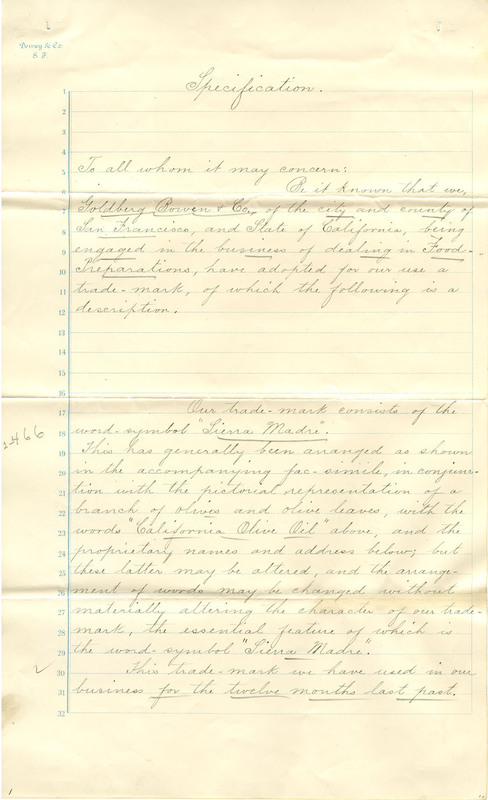 Dewey & Co.
S. F.
Specification.
1
2
3
4
5 To all whom it may concern:
6 Be it known that we,
7 Goldberg Bowen & Co., of the city and county of
8 San Francisco, and State of California, being
9 engaged in the business of dealing in Food-
10 Preparations, have adopted for our use a
11 trade-mark, of which the following is a
12 description.
13
14
15
16
17 Our trade-mark consists of the
18 word-symbol "Sierra Madre".
2466
19 This has generally been arranged as shown
20 in the accompanying fac-simile, in conjunc-
21 tion with the pictorial representation of a
22 branch of olives and olive leaves, with the
23 words "California Olive Oil" above, and the
24 proprietary names and address below; but
25 these latter may be altered, and the arrange-
26 ment of words may be changed without
27 materially altering the character of our trade-
28 mark, the essential feature of which is
29 the word-symbol "Sierra Madre".
30 This trade-mark we have used in our
31 business for the twelve months last past.
32